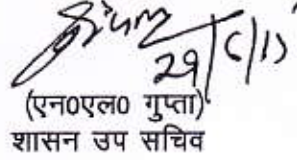 29/6/15
(एन0एल0 गुप्ता)
शासन उप सचिव